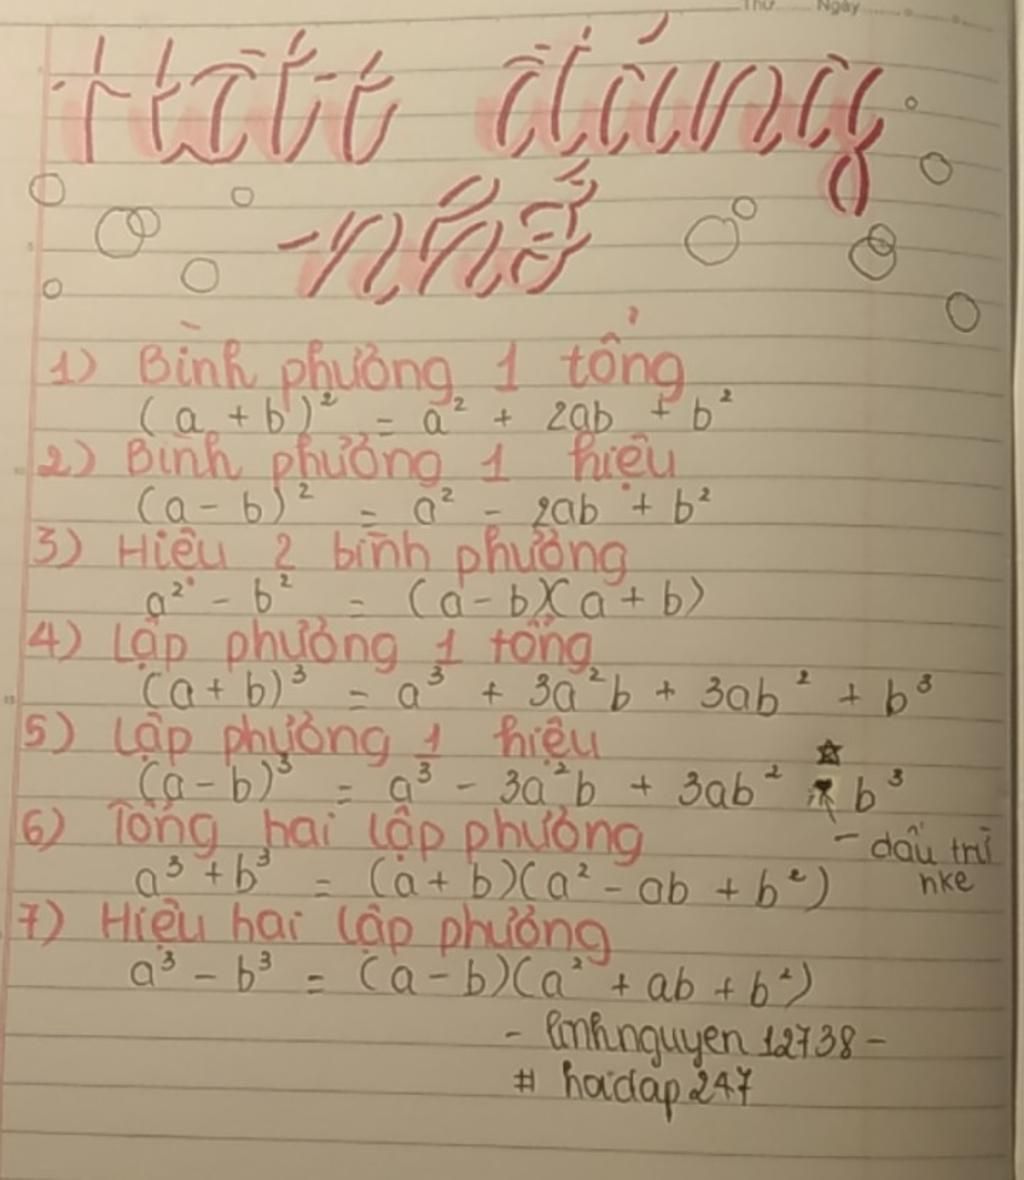 Thứ Ngày
Hằng đẳng
1) Bình phương 1 tổng
(a + b)² = a² + 2ab + b²
2) Bình phương 1 hiệu
(a - b)² = a² - 2ab + b²
3) Hiệu 2 bình phương
a² - b² = (a - b)(a + b)
4) Lập phương 1 tổng
(a + b)³ = a³ + 3a²b + 3ab² + b³
5) Lập phương 1 hiệu
(a - b)³ = a³ - 3a²b + 3ab² b³
6) Tổng hai lập phương
- dấu trừ
a³ + b³ = (a + b)(a² - ab + b²)
nke
7) Hiệu hai lập phương
a³ - b³ = (a - b)(a² + ab + b²)
- linhnguyen 12738 -
# hoidap247